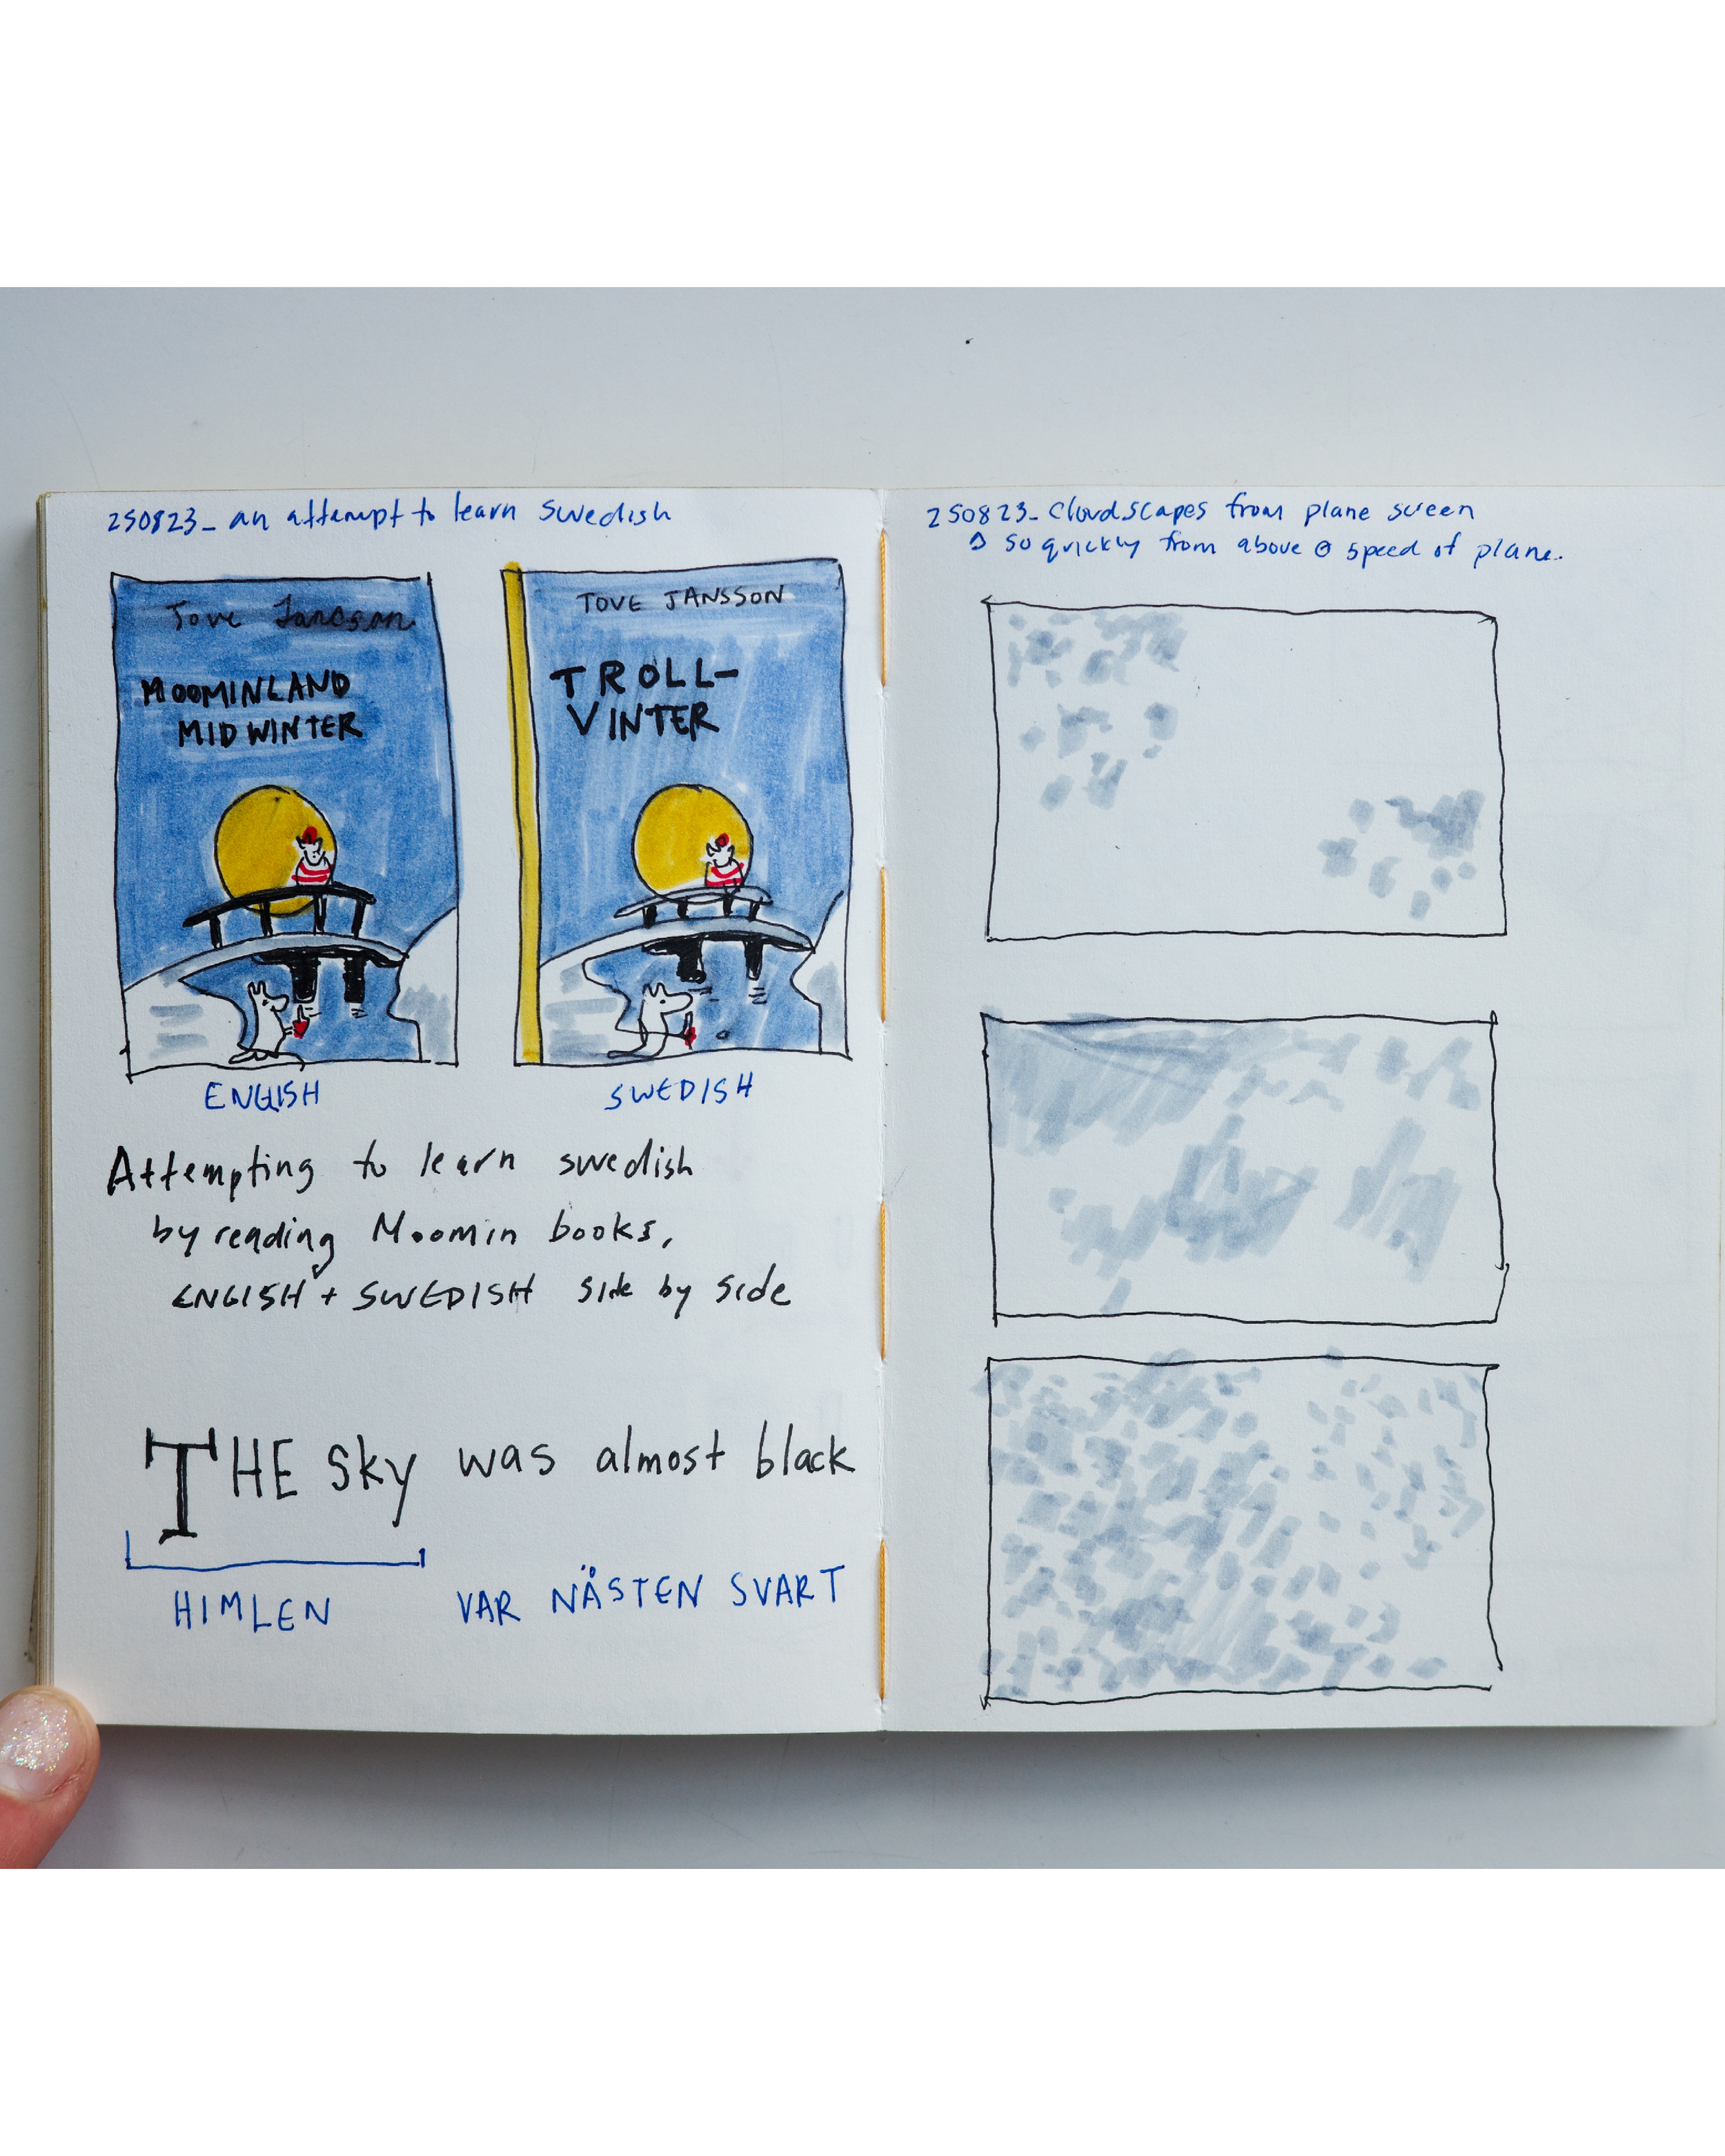 250823_ an attempt to learn swedish
Tove Jansson
MOOMINLAND
MIDWINTER
TOVE JANSSON
TROLL-
VINTER
ENGLISH
SWEDISH
Attempting to learn swedish
by reading Moomin books,
ENGLISH + SWEDISH side by side
THE sky was almost black
HIMLEN VAR NÄSTEN SVART
250823_ cloudscapes from plane screen
Δ so quickly from above @ speed of plane.